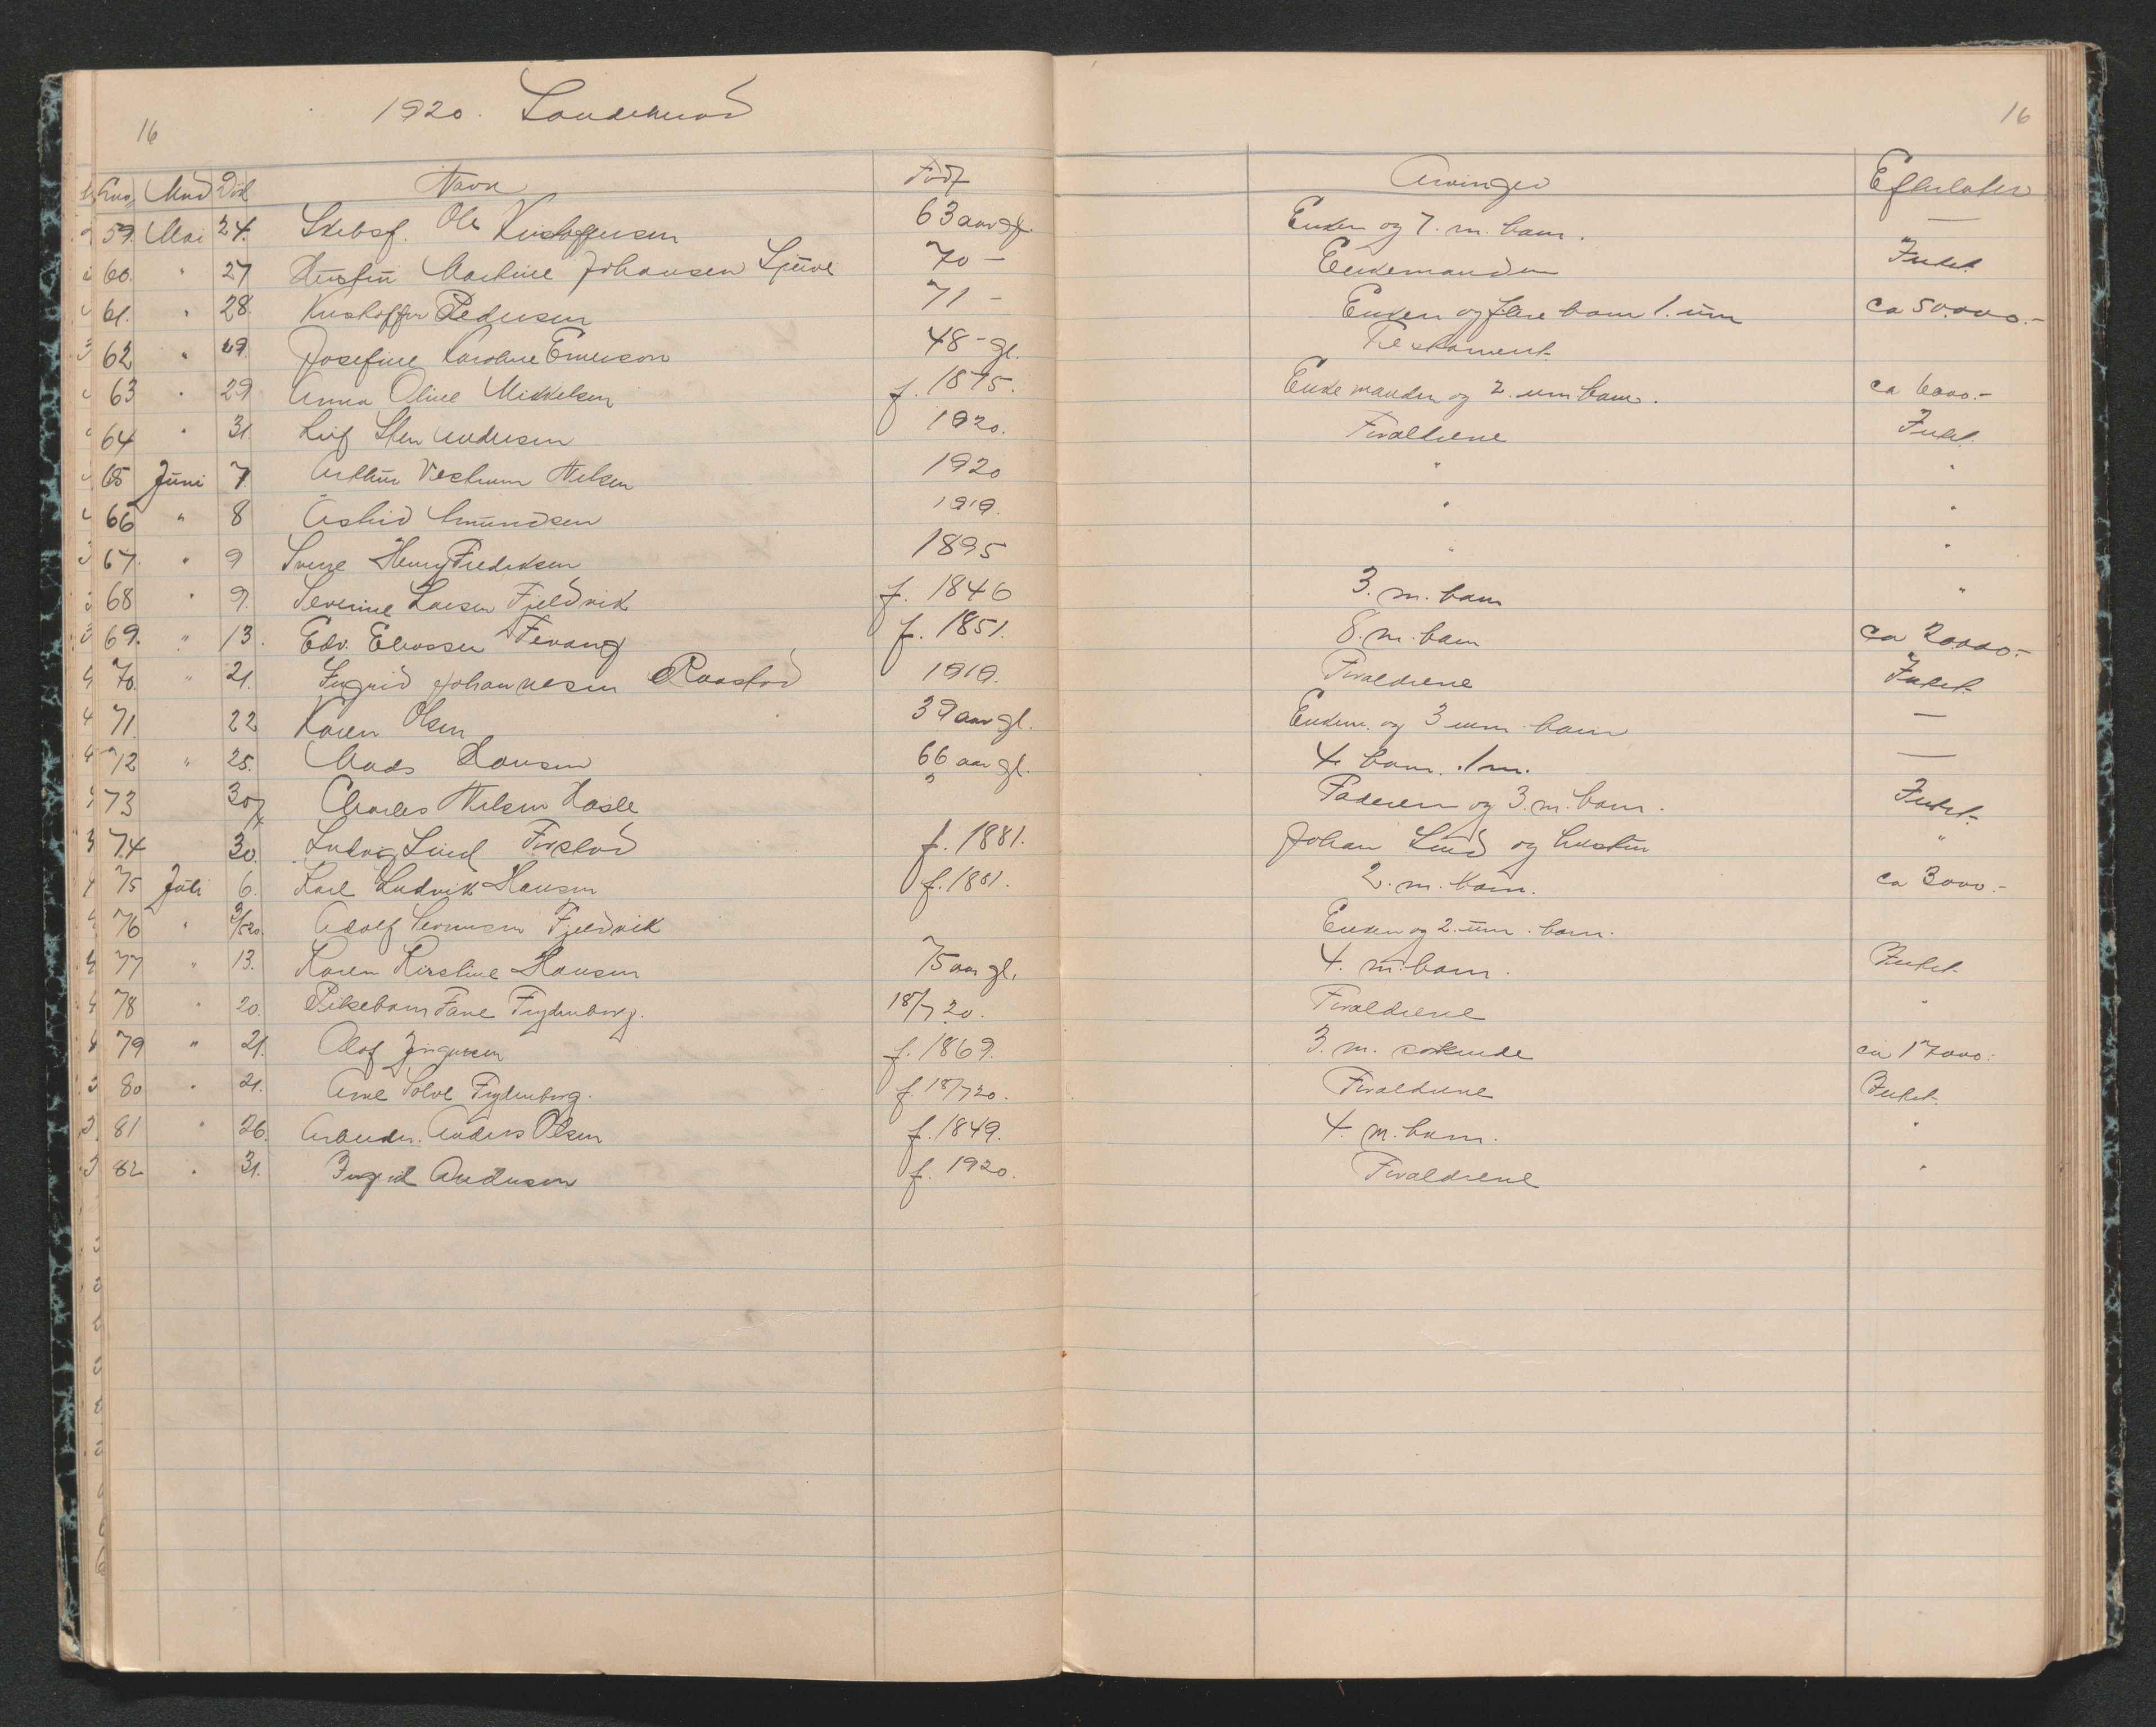 16 1920. Sandeherad 16
Mnd Død Navn Født Arvinger Efterlater
59. Mai 24. Skibsf. Ole Kristoffersen 63 aar gl. Enken og 7. m. barn. —
60. " 27 Hustru Martine Johansen 70 — Enkemanden Intet.
61. " 28. Kristoffer Pedersen 71 — Enken og flere barn 1. um ca 50.000.-
62 " 29. Josefine Karoline Emerson 48 - gl. Testament
63 " 29 Anna Oline Mikkelsen f. 1875. Enkemanden og 2. um barn. ca 6000.-
64 " 31. Leif Sten Andersen 1920. Foraldrene Intet.
65 Juni 7 Arthur Vestrum Nilsen 1920 " "
66 " 8 Astrid Amundsen 1919. " "
67. " 9 Sverre Henry Fredriksen 1895 " "
68 " 9. Severine Larsen Fjeldvik f. 1846 3. m. barn "
69. " 13. Edv. Eliassen Fevang f. 1851. 8. m. barn ca 20.000.-
70. " 21. Ingrid Johannesen Raastad 1919. Foraldrene Intet.
71. 22 Karen Olsen 39 aar gl. Enkem. og 3 um. barn —
72 " 25. Mads Hansen 66 aar gl. 4 barn. 1 m. —
73 30/4 Charles Nilsen Hasle " Faderen og 3. m. barn. Intet.
74 30. Ludvig Lind Firstad f. 1881. Johan Lind og hustru "
75 Juli 6. Karl Ludvik Hansen f. 1881. 2. m. barn. ca 3000.-
76 " Adolf Fjeldvik Enken og 2. um. barn.
77 " 13. Karen Kirstine Hansen 75 aar gl. 4. m. barn. Intet.
78 " 20. Pikebarn Tane Frydenborg. 18/7 20. Foraldrene "
79 " 21. Olaf Jørgensen f. 1869. 3. m. søskende ca 17000.-
80 " 21. Arne Solve Frydenborg. f. 18/7 20. Foraldrene Intet.
81 " 26. Arbeider. Anders Olsen f. 1849. 4. m. barn. "
82 " 31. Ingrid Andersen f. 1920. Foraldrene "